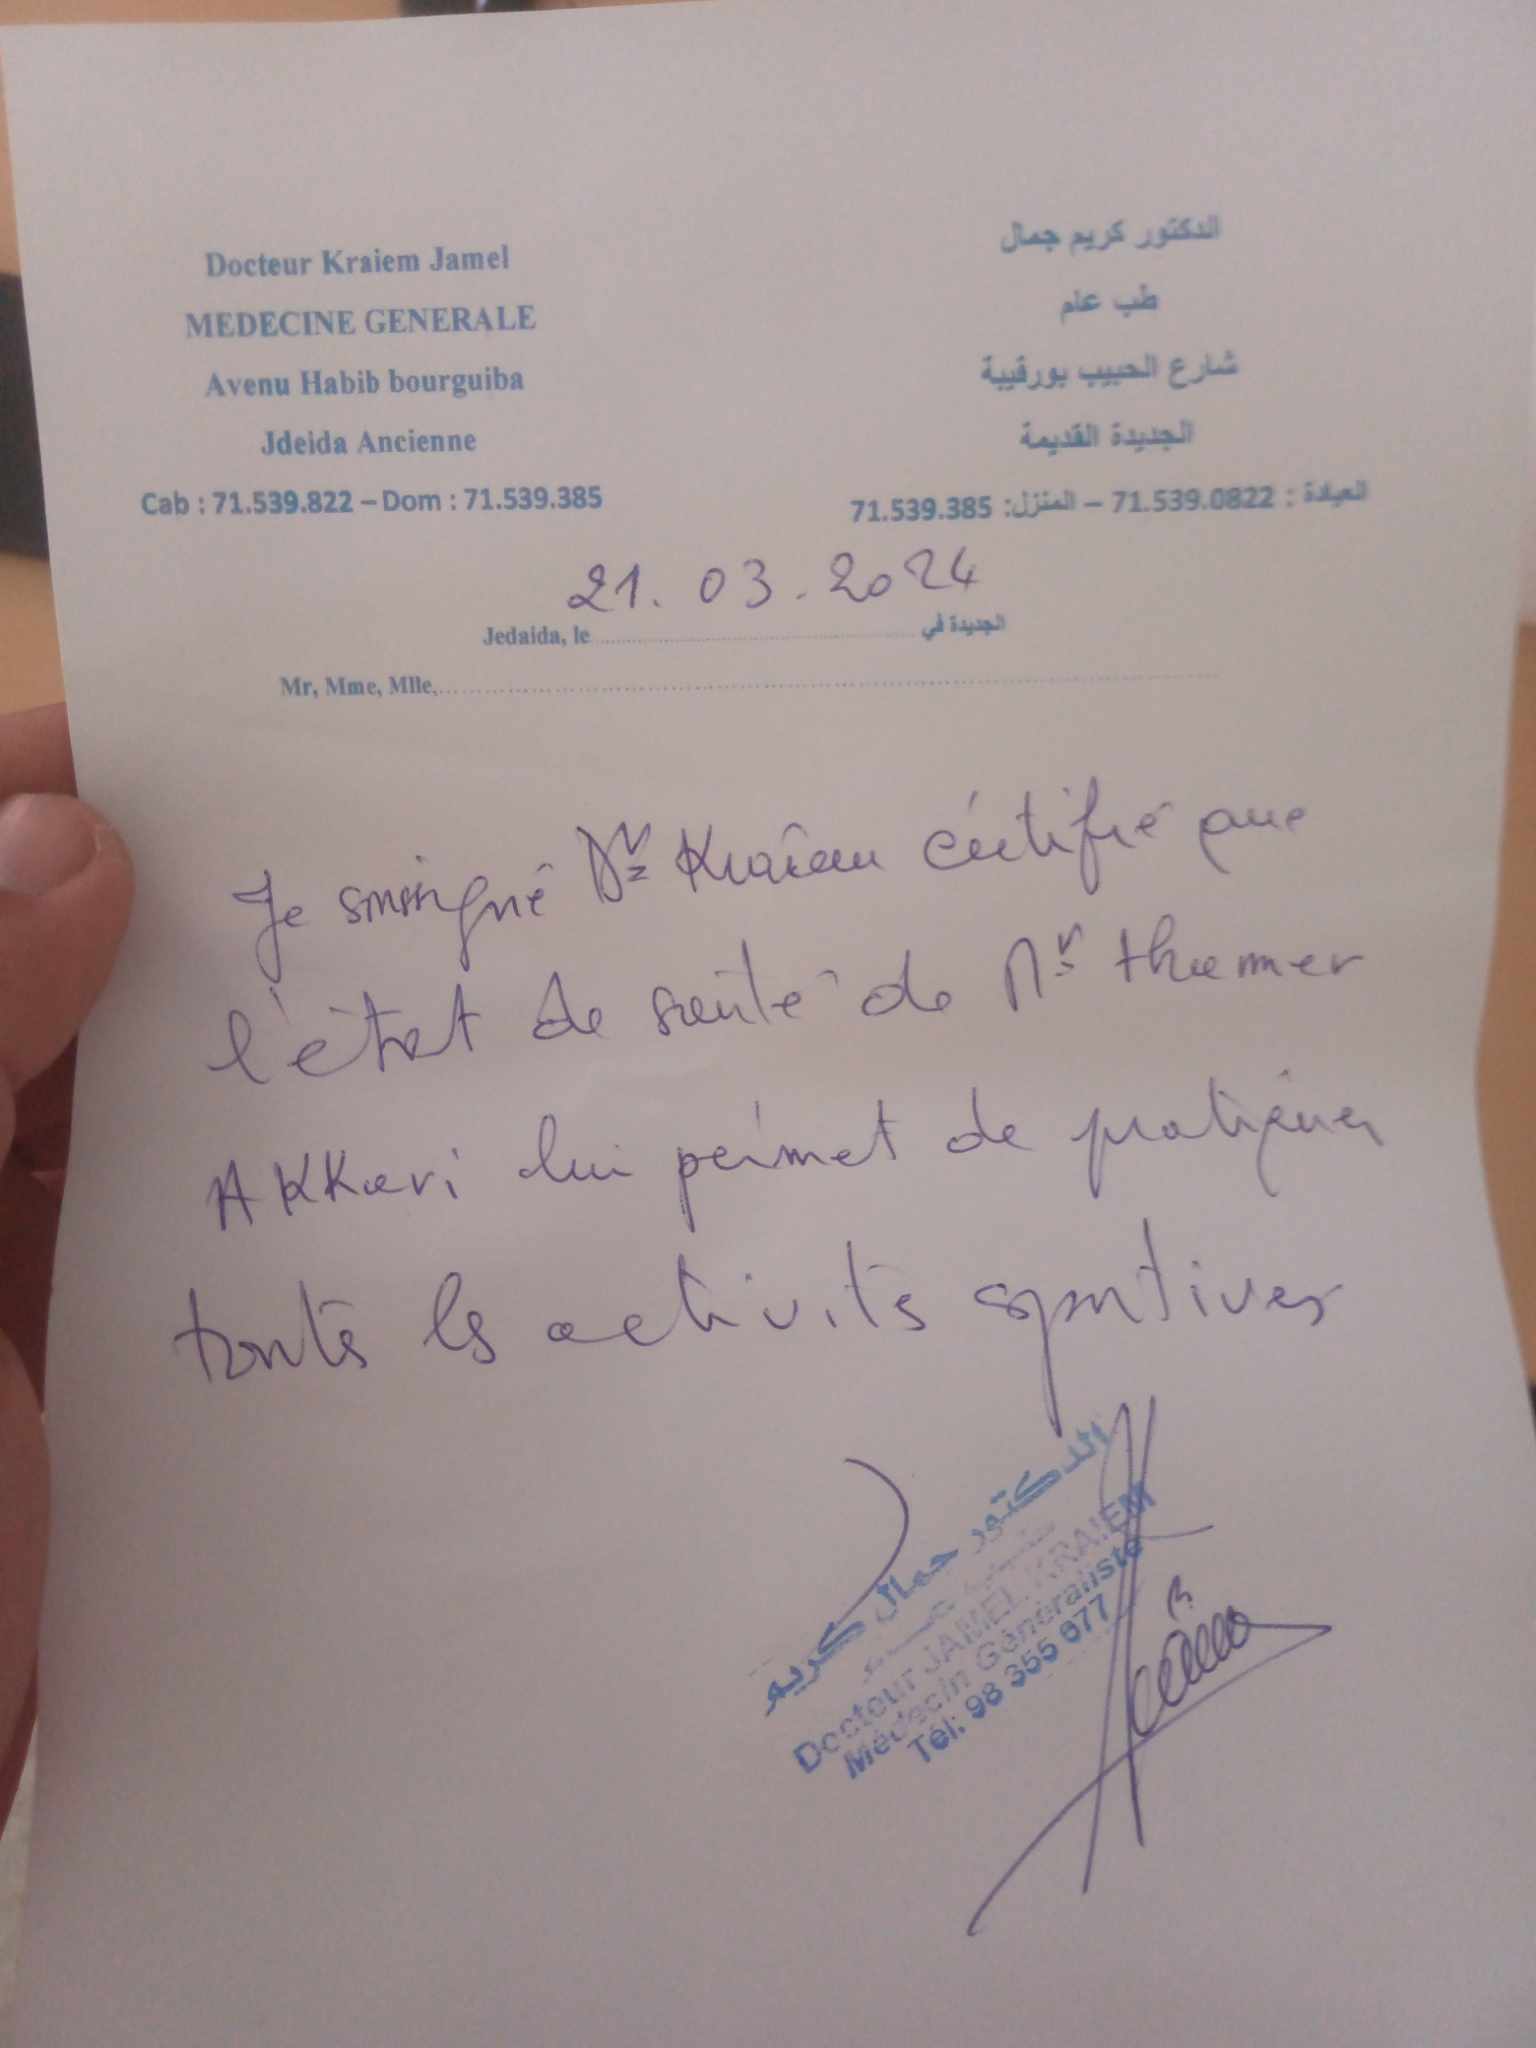 Docteur Kraiem Jamel
MEDECINE GENERALE
Avenu Habib bourguiba
Jdeida Ancienne
Cab : 71.539.822 – Dom : 71.539.385
الدكتور كريم جمال
طب عام
شارع الحبيب بورقيبة
الجديدة القديمة
العيادة : 71.539.0822 – المنزل: 71.539.385
21.03.2024
Jedaida, le ........ الجديدة في
Mr, Mme, Mlle,........
Je soussigné Dr Kraiem certifié que
l'état de santé de Mr thamer
AKKari lui pérmet de pratiquer
toutes les activités sportives
الدكتور جمال كريم
Docteur JAMEL KRAIEM
Médecin Généraliste
Tél: 98 355 677